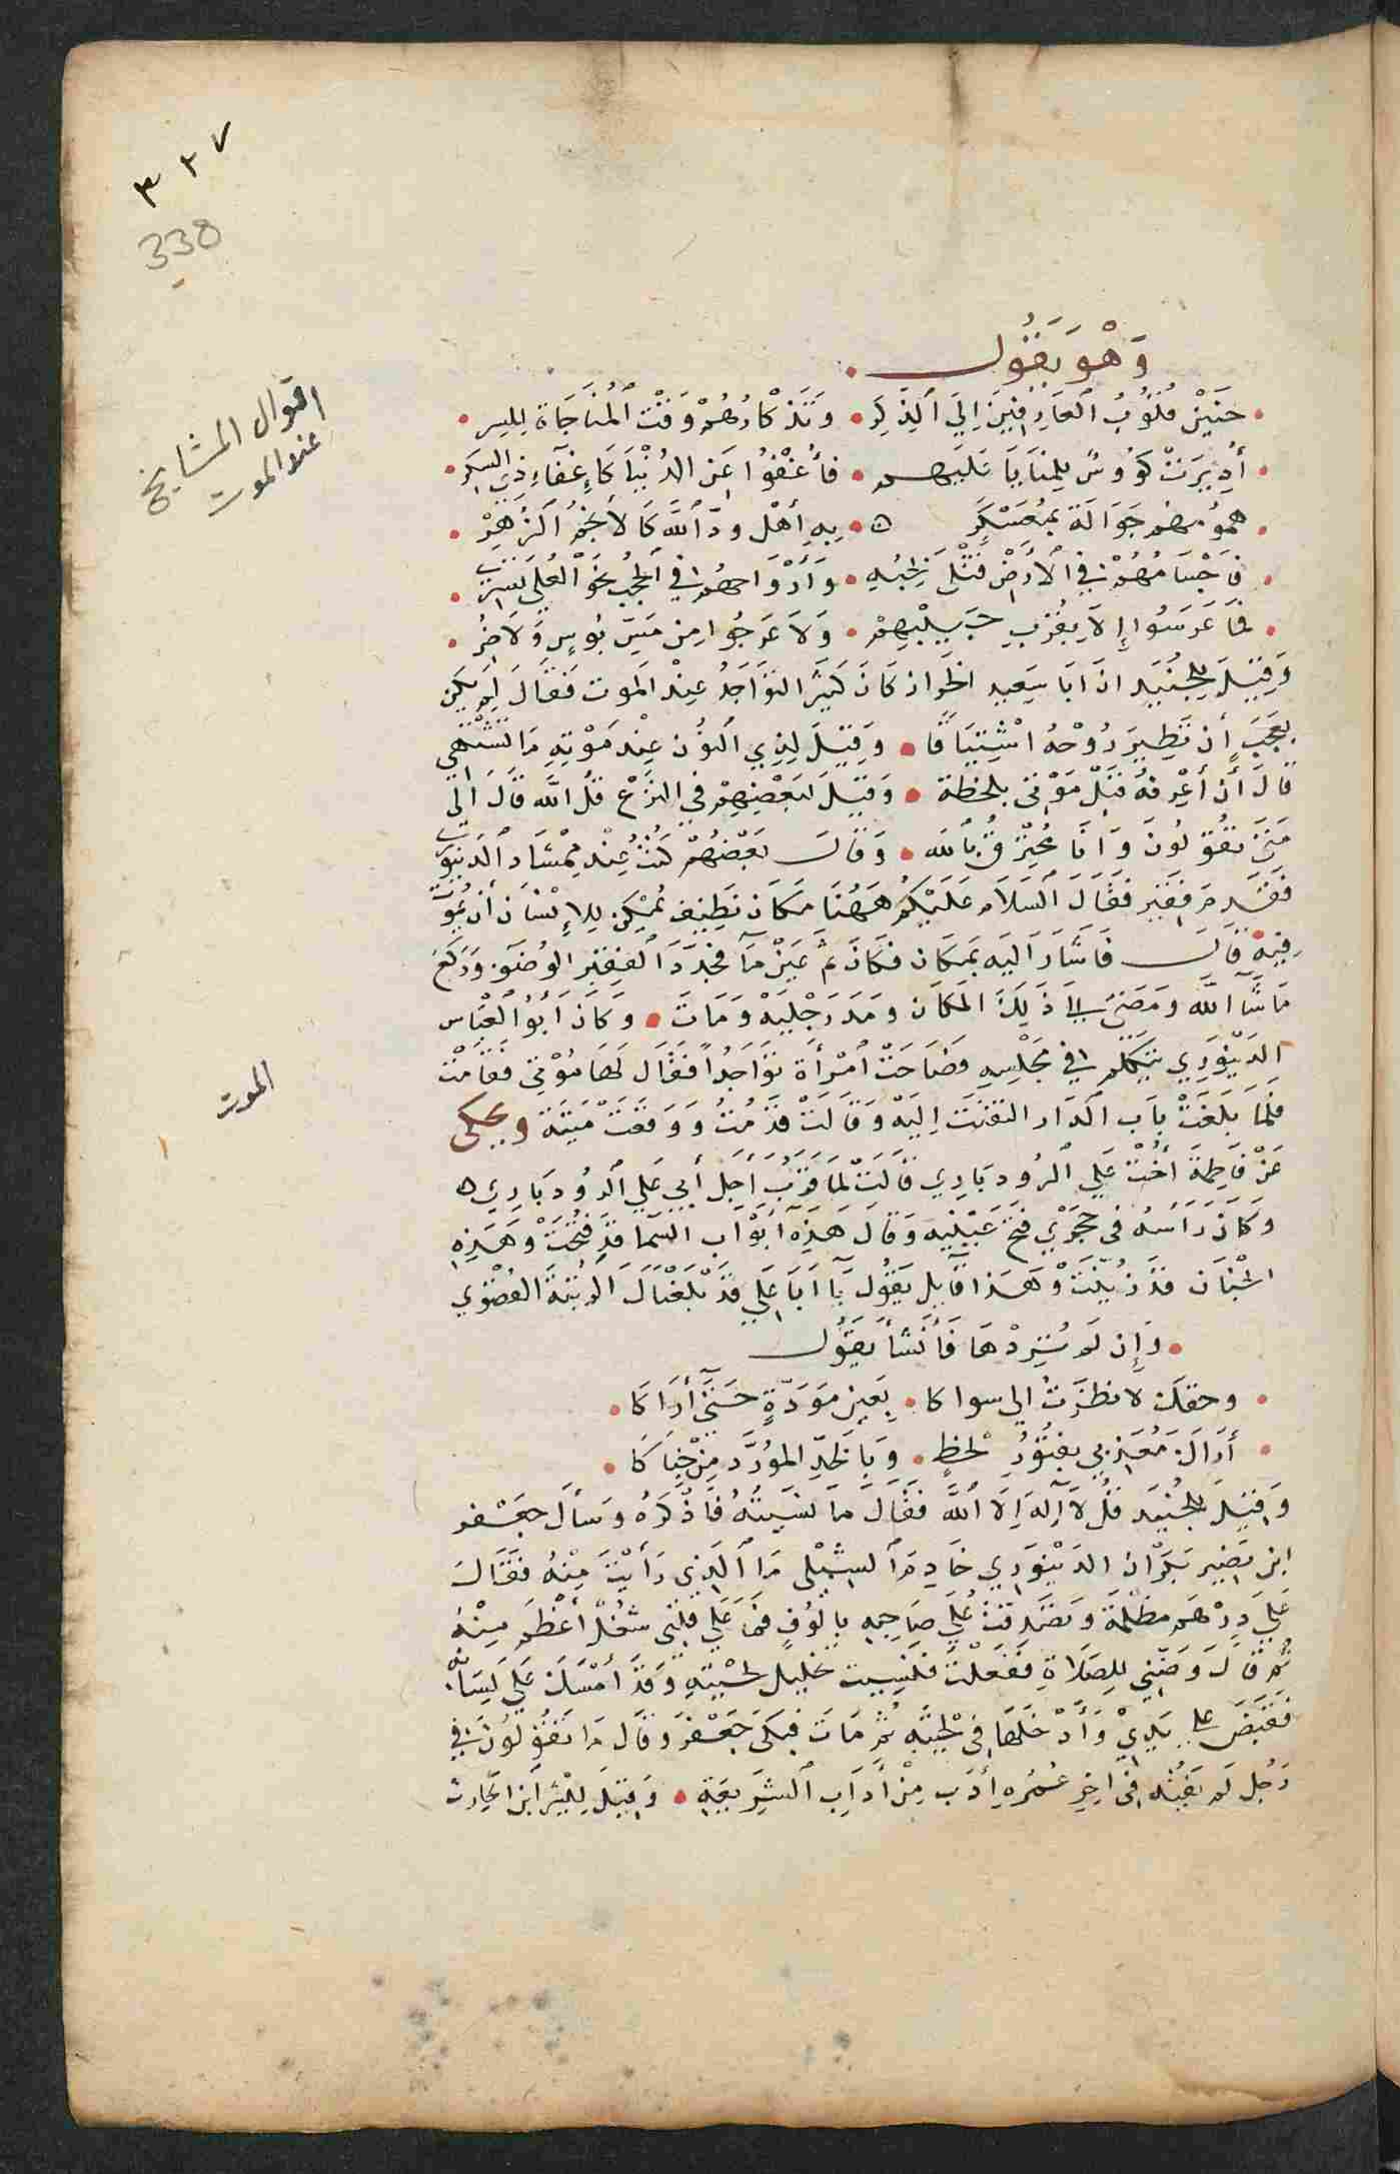 ٣٢٧
338
وَهْوَ يَقُول
حَنِيْن قُلُوْبُ الْعَارِفِيْنَ إِلَى الذِّكْرِ • وَتَذْكَارُهُمْ وَقْتَ الْمُنَاجَاة لِلسِّر
اقوال المشايخ
عند الموت
أُدِيْرَتْ كُؤُوسٌ لِلمنَايَا عَلَيهِم • فَأَغْفَوْا عَن الدُّنْيَا كَإِغْفَاءِ ذِي السكر
هُمُوْمُهُم جَوَالَة بمُعَسْكَرٍ ه • بِهِ أَهْل ودّ اللَّه كَالأَنْجُم الزُهْرِ
فَأَجْسَامُهُمْ فِي الأَرْضِ قَتْلَى بِحُبِّهِ • وَأَرْوَاحهُم في الْحُجْبِ نَحْوَ الْعُلَى تَسْري
فَمَا عَرَسُوا إِلاَّ بِقُرْبِ حَبِيبِهِمْ • وَلاَ عَرجُوا مِن مَسِّ بُوسٍ وَلاَ ضُرِّ
وَقِيْلَ لِلْجُنَيدِ ان أَبَا سَعِيدِ الخَراز كَانَ كَثِيْرَ التوَاجدُ عِنْد المَوت فَقَالَ لَم يَكُن
بِعَجَبٍ أَن تَطِيرَ رُوْحهُ اشْتِيَاقًا • وَقِيْلَ لِذِي النوُن عِنْد مَوْتِهِ مَا تَشْتَهي
قَالَ أَن أَعْرِفهُ قَبْلَ مَوْتي بِلَحْظَة • وَقِيْلَ لبَعْضِهِمْ في النَزْع قُل اللَّه قَالَ الى
مَتى تَقُوْلُونَ وَانَا مُحْتَرق بِاللَّه • وَقَالَ بَعْضهُمْ كُنْتُ عِنْدَ مِمْشَاد الدينوري
فَقَدِمَ فَقِير فَقَالَ السَلاَم عَلَيْكُم هَهُنَا مَكَان نَظِيف يُمْكِن لِلإِنْسَان أَن يَمُوت
فيهِ قَالَ فَاشَارَ إلَيه بمَكَان فكَانَ ثمَّ عَيْن مَاء فَجَدَّدَ الْفَقِير الوُضُوء وَرَكَعَ
مَا شَاءَ اللَّه وَمَضَى إلَى ذَلِكَ المَكَان وَمَدَ رِجْلَيْه وَمَاتَ • وَكَانَ أَبُو الْعَبَاس
الدَيْنوَرِي يَتَكَلم في مَجْلِسِهِ فَصَاحَتْ امْرَأَة تَوَاجُداً فَقَال لَهَا مُوْتي فَقَامَتْ
الموت
فَلَما بَلَغَتْ بَاب الدَار التفَتَتْ إِلَيْهِ وَقَالَتْ قَدْ مُتُّ وَوَقَعَتْ مَيتَةً ويحكى
عَنْ فَاطِمَة أُخْت عَلى الرُوذبَارِي قَالَتْ لَمَا قَرُبَ أَجَل أَبي عَلى الرُوذبَارِي ه
وكَانَ رَأسُه في حَجْرِي فَتَحَ عَيْنَيْهِ وَقَالَ هَذِهِ أَبْوَاب السَمَا قَدْ فُتِحَتْ وَهَذِهِ
الْجِنَان قَدْ زُيِّنَتْ وَهَذَا قَايِل يَقُول يَا أَبَا عَلى قَدْ بَلَغْنَاكَ الرُتْبَة القُصْوَى
وَإِن لَمْ تُرِدْهَا فَأَنْشَأَ يَقُول
وحقك لا نظَرْتُ إلى سواكا • بِعَيْنِ مَوَدّةٍ حَتى أَرَاكَا
أَرَاكَ مُعَذِّبي بفتُوْرِ لَحْظٍ • وَبِالْخَدِّ المُوَرَّد مِنْ جنَاكَا
وَقِيْلَ لِلْجُنَيْد قُلْ لاَ إِلهَ إِلا اللَّه فَقَالَ مَا نَسِيتُهُ فَأَذْكُرَهُ وَسَأَلَ جَعْفر
ابن نصِيْر بَكْرَان الدَيْنوَرِي خَادِم الشِبْلى مَا الذي رَأَيْتَ مِنْهُ فَقَالَ
عَلَيَّ دِرْهَم مَظلَمَة وَتَصَدَّقْتُ عَلَى صَاحِبِهِ بِأُلُوفٍ فَمَا عَلَى قَلْبى شُغْل أَعْظَم مِنْهُ
ثُمَّ قَالَ وَضِّني لِلصَلاَةِ فَفَعَلْتُ فَنَسِيت تخليل لحْيَتِهِ وَقَدْ أَمْسَكَ عَلَى لسَانه
فَقَبَضَ عَلى يَدِيْ وَأَدْخَلَهَا في لحْيَتِهِ ثُمَّ مَاتَ فبكَى جَعْفَر وَقَال مَا تَقُوْلُونَ في
رَجُل لَم يَفُتْه في اخِرِ عُمُرِهِ أَدَب مِنْ آدَابِ الشَرِيعَةِ • وَقِيْلَ لِبِشْر ابن الحَارِث